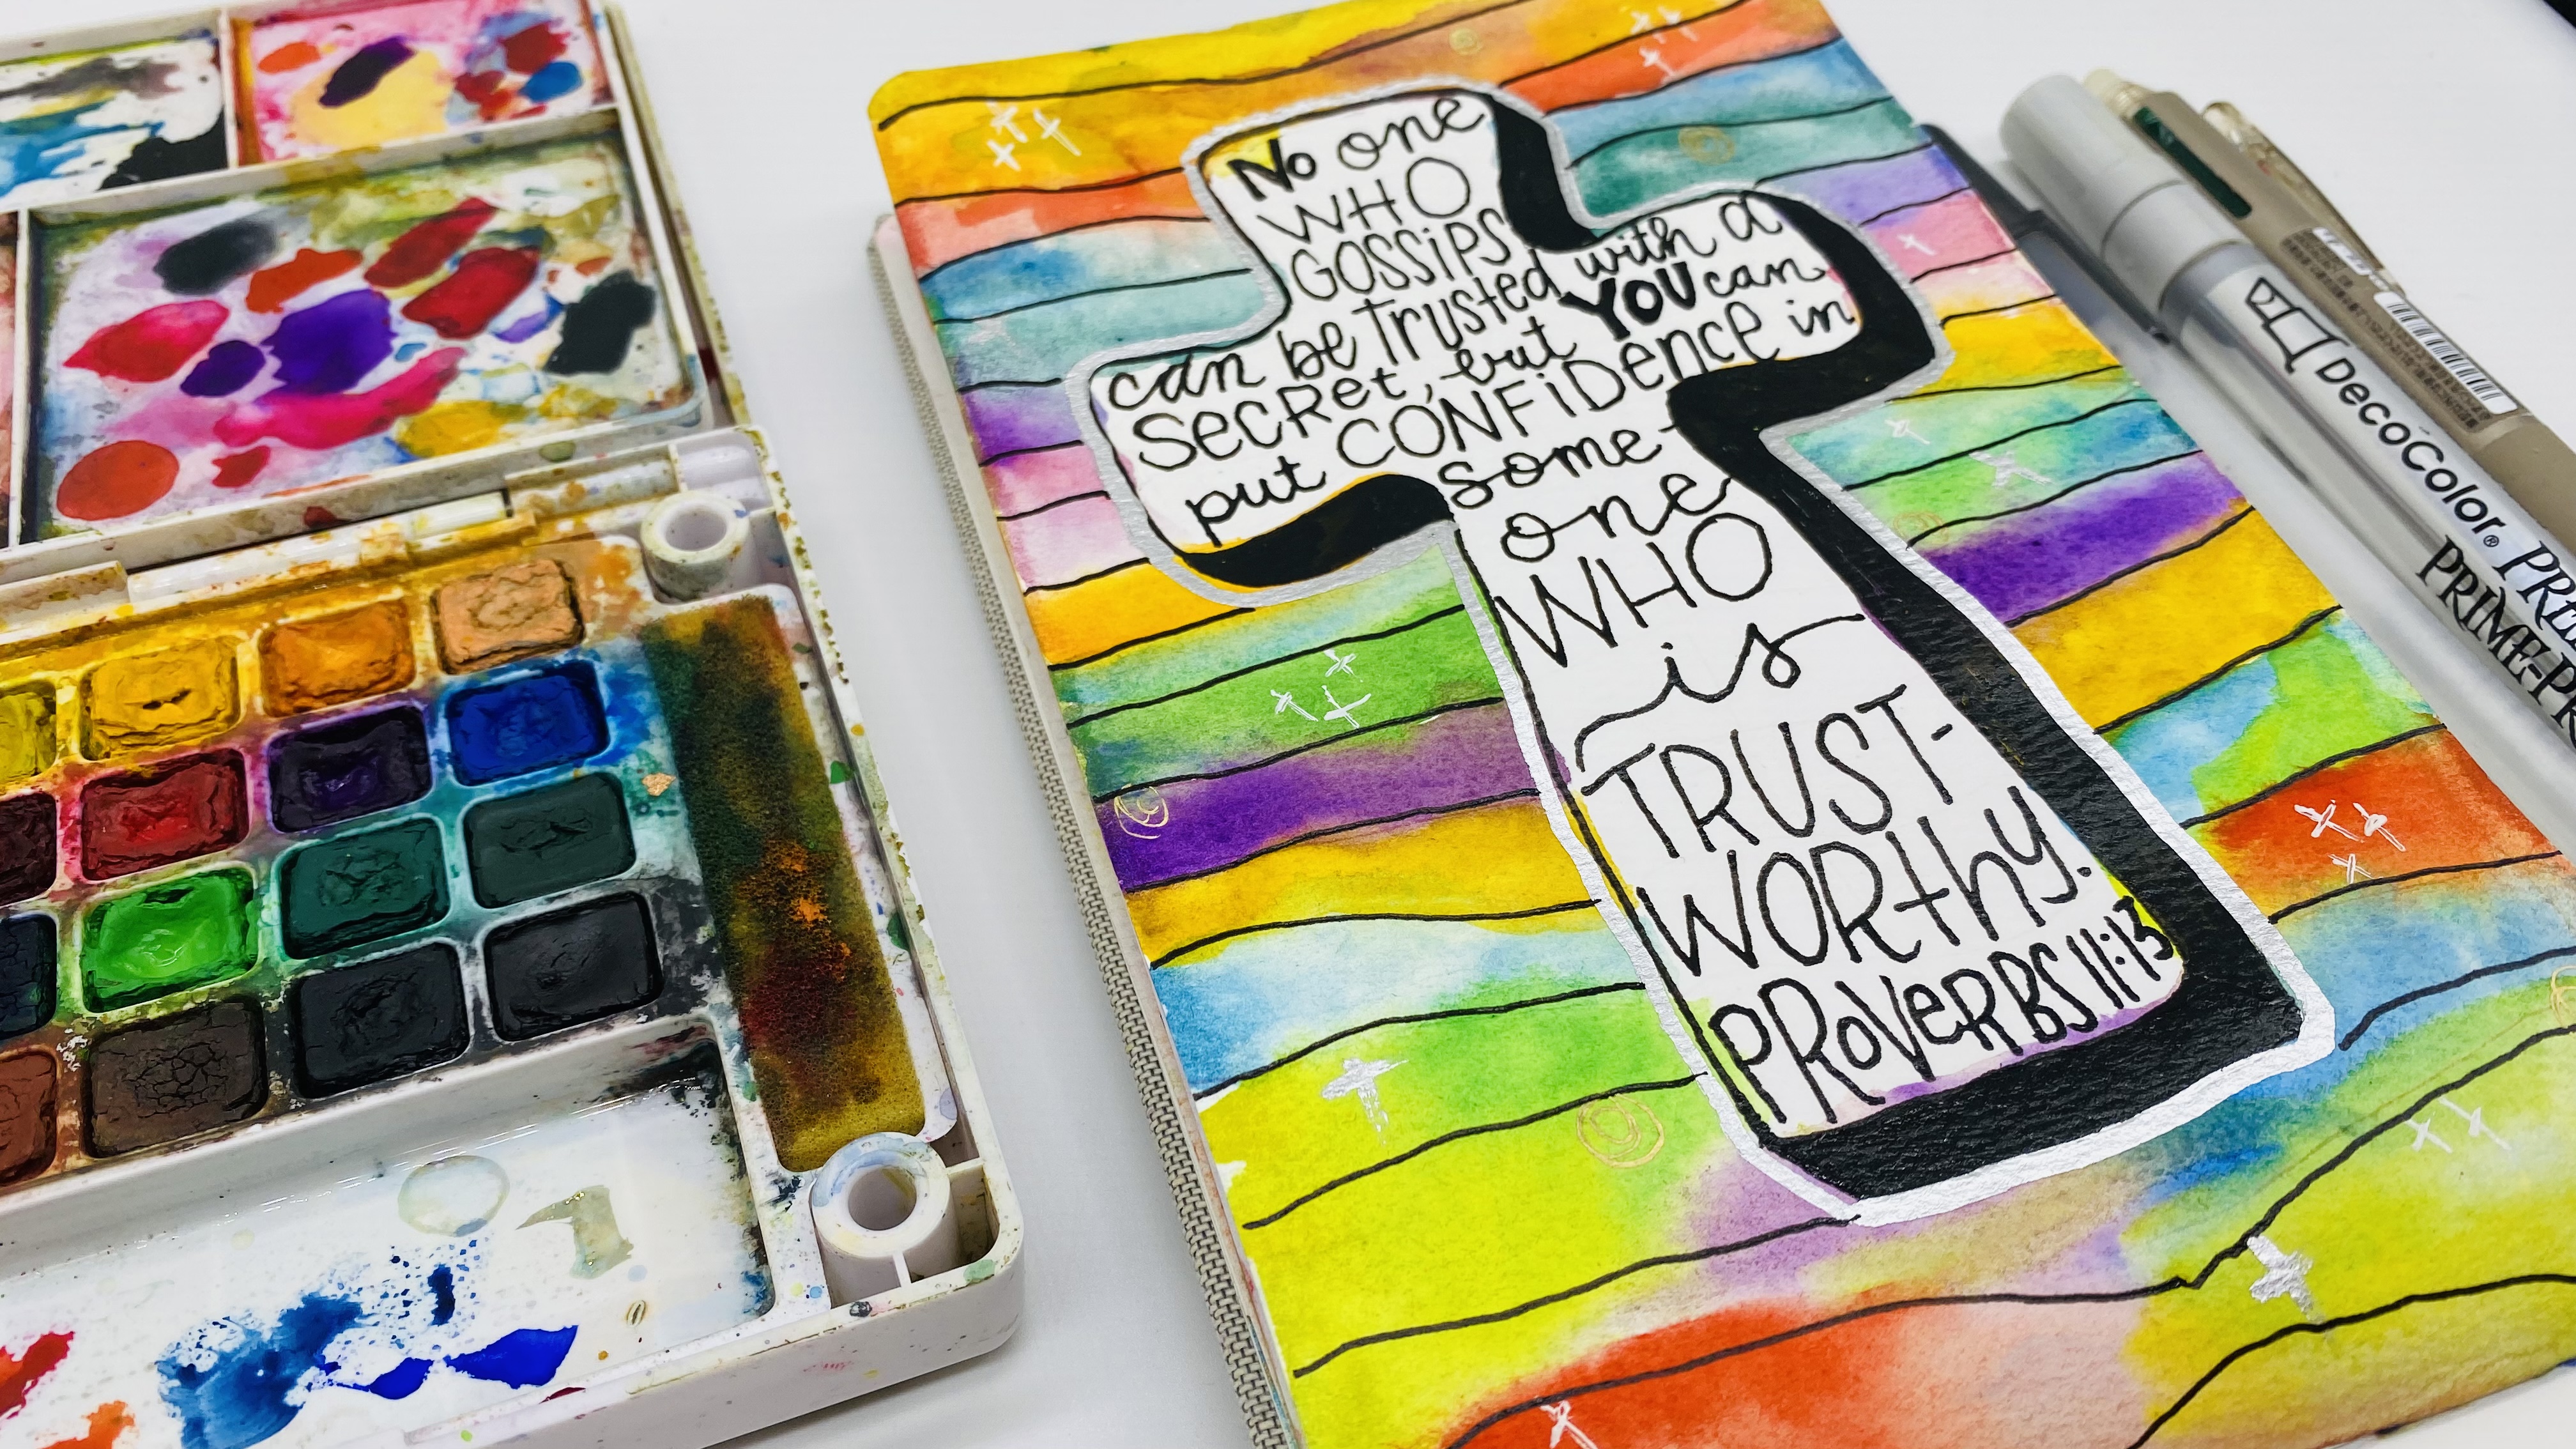 No one
WHO
GOSSiPS
can be Trusted with a
SecRet, but YOU can
put CONFiDence in
some-
one
WHO
is
TRUST-
WORthy.
PRoVeRBS 11:13
DecoColor®
PRIME-PR